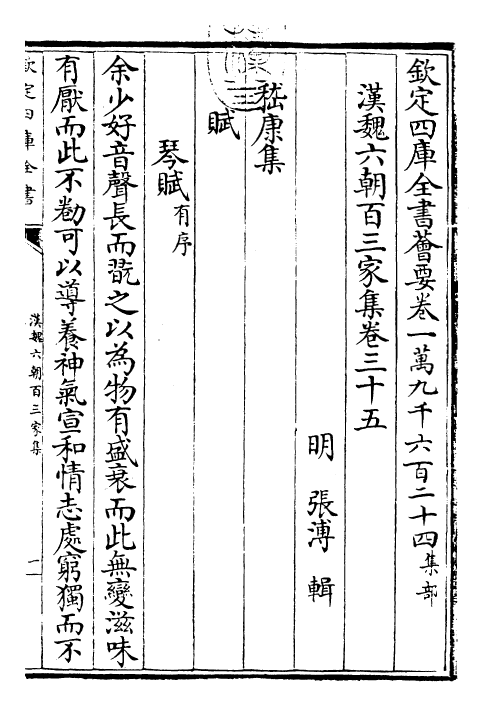 欽定四庫全書薈要卷一萬九千六百二十四集部
漢魏六朝百三家集卷三十五
明 張溥 輯
嵇康集
賦
琴賦有序
余少好音聲長而翫之以為物有盛衰而此無變滋味
有厭而此不勌可以導養神氣宣和情志處窮獨而不
欽定四庫全書
漢魏六朝百三家集
一